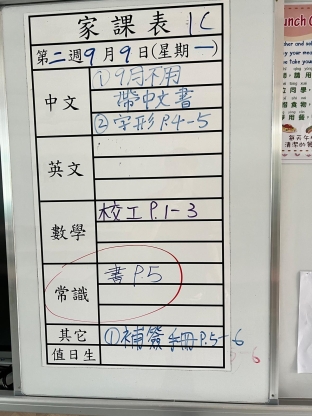 家課表 1C
第二週9月9日(星期一)
中文
①9月不用
帶中文書
②字形P.4-5
英文
數學
校工P.1-3
常識
書P.5
其它
①補簽手冊P.5-6
值日生